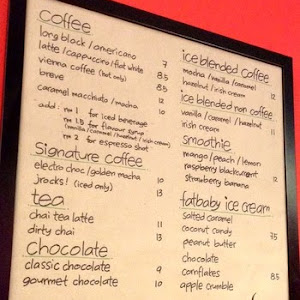 coffee
long black/americano 7
latte/cappuccino/flat white 8
vienna coffee (hot only) 8.5
breve
caramel macchiato/mocha 10
add: rm 1 for iced beverage
rm 1.5 for flavour syrup
(vanilla/caramel/hazelnut/irish cream)
rm 2 for espresso shot
Signature coffee
electro choc/golden mocha 10
jrocks! (iced only) 13
tea
chai tea latte 11
dirty chai 13
Chocolate
classic chocolate 9
gourmet chocolate 10
ice blended coffee
mocha/vanilla/caramel 12
hazelnut/irish cream
ice blended non coffee
vanilla/caramel/hazelnut 11
irish cream
smoothie
mango/peach/lemon 12
raspberry blackcurrant
strawberry banana
fatbaby ice cream
salted caramel
coconut candy 7.5
peanut butter
chocolate
cornflakes 8.5
apple crumble